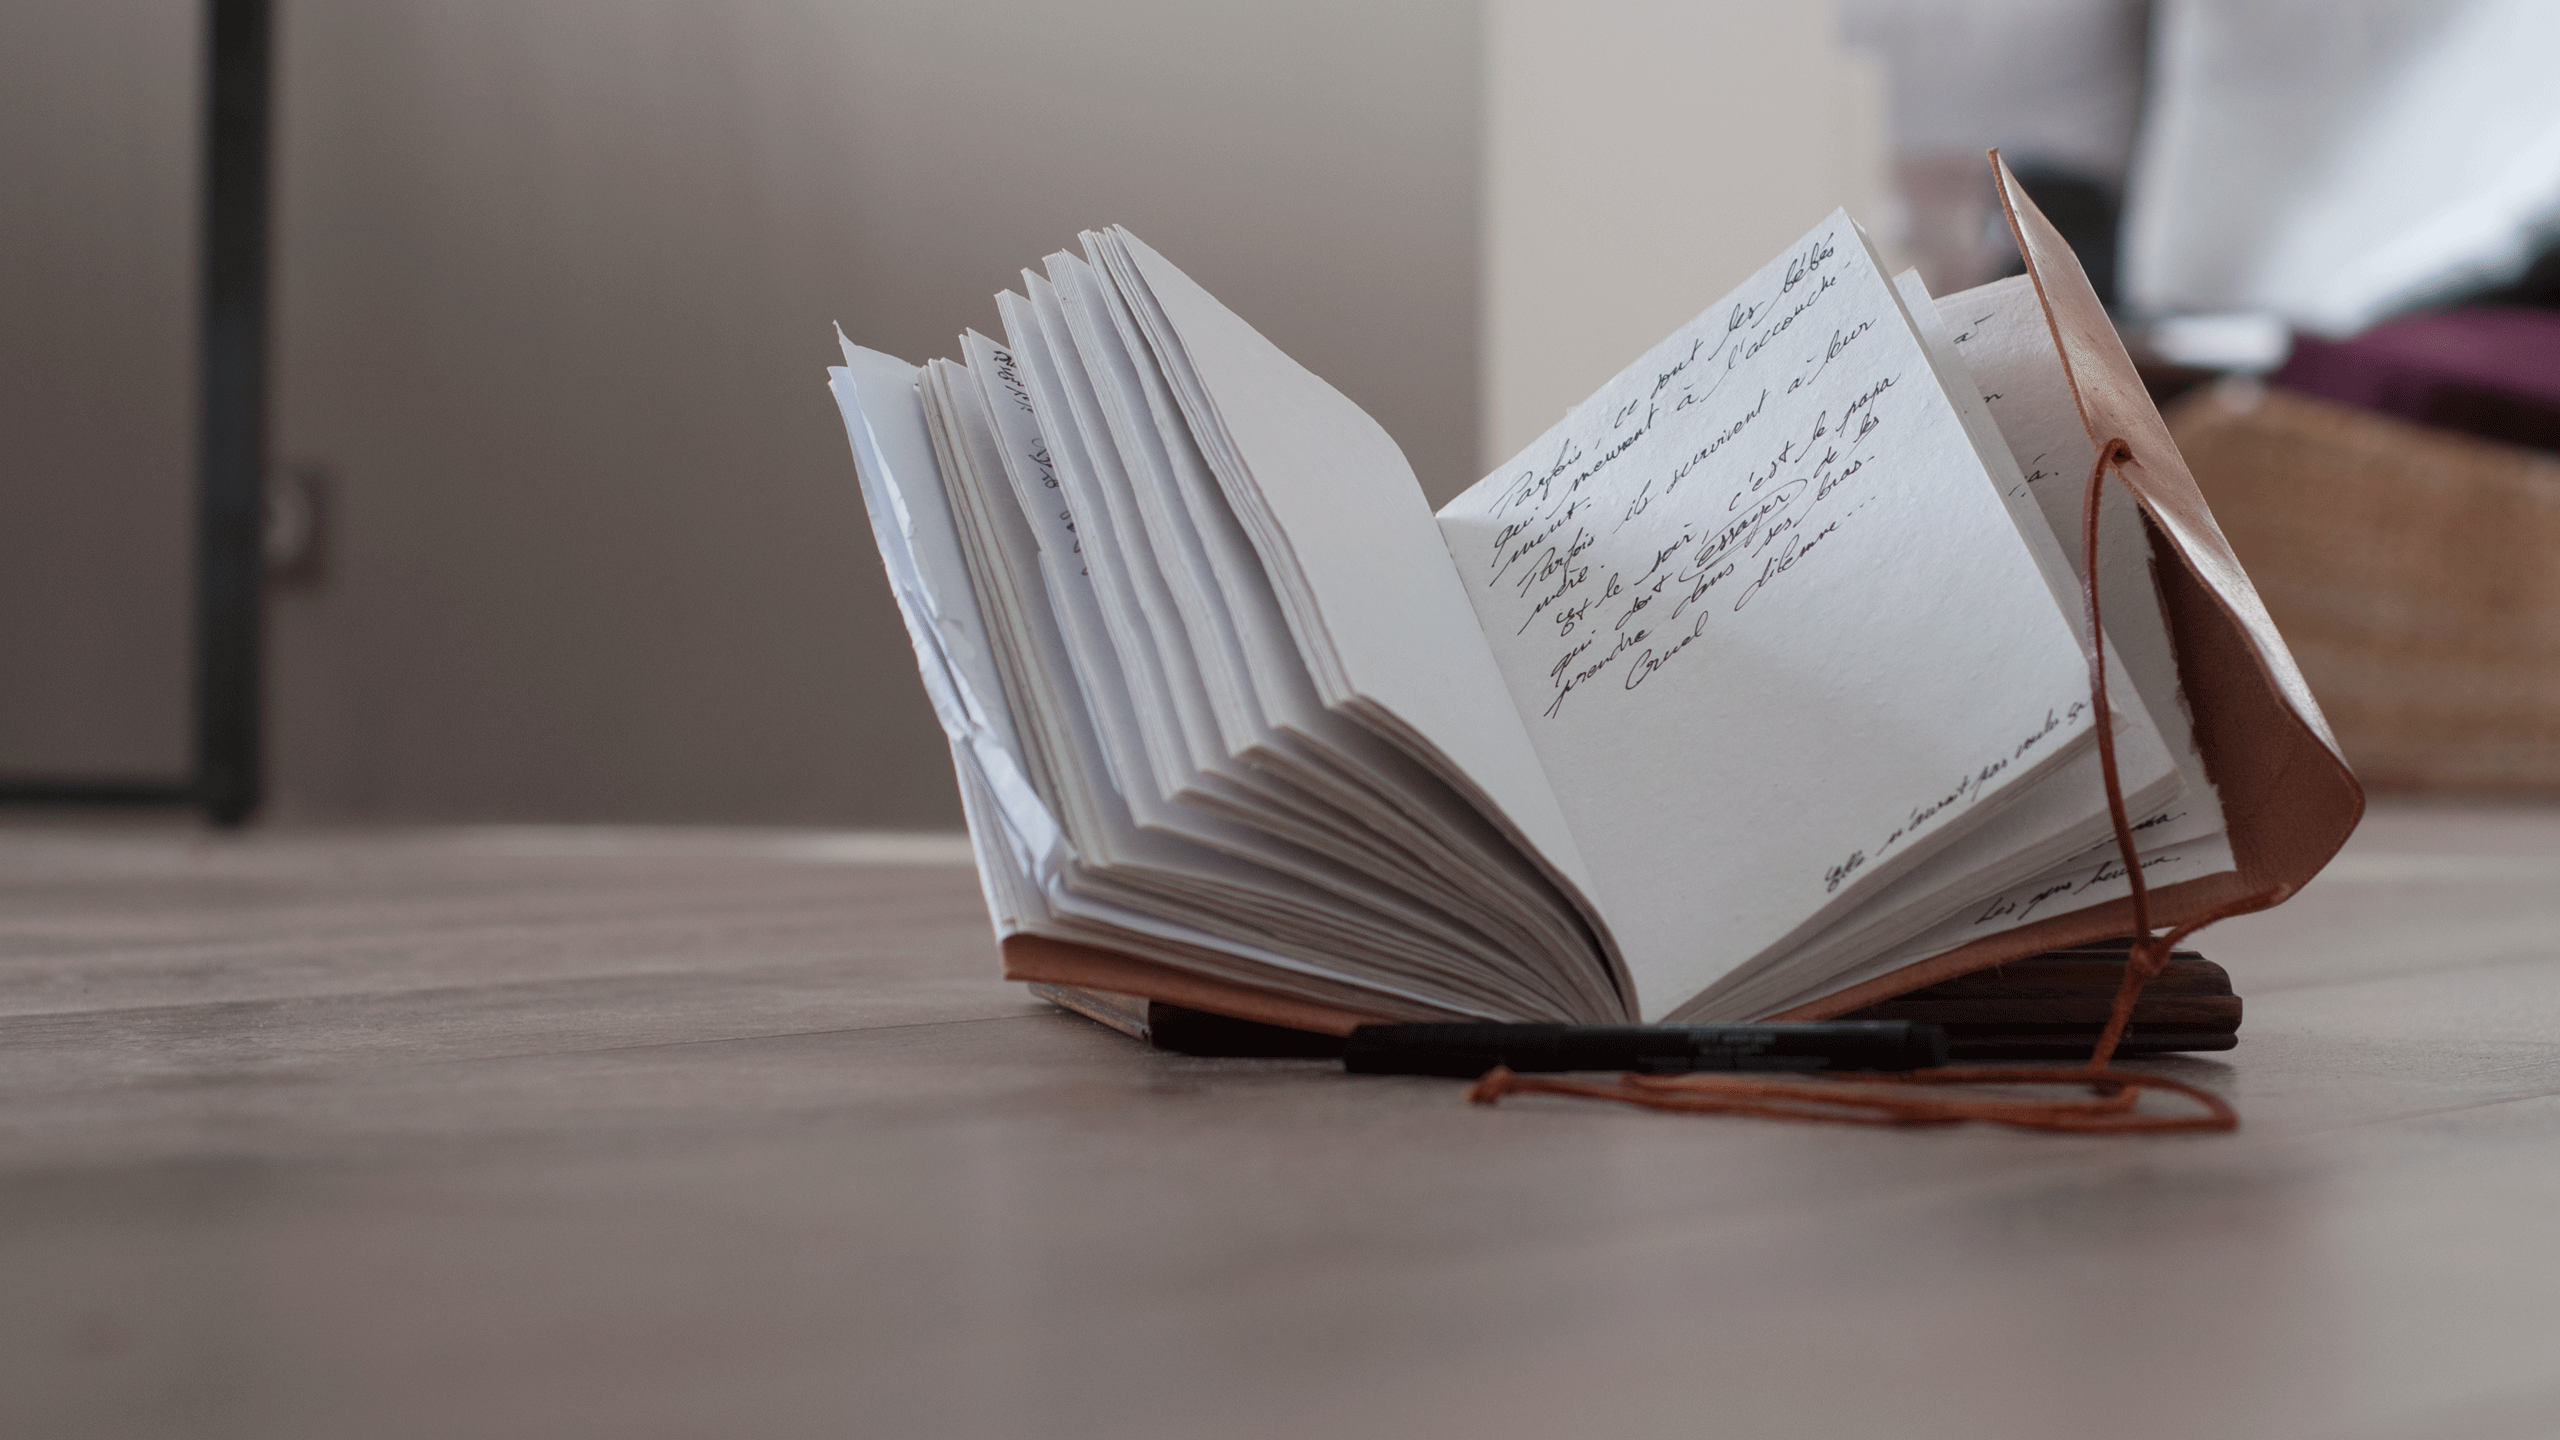 Parfois, ce sont les bébés
qui meurent à l'accouche-
ment.
Parfois ils survivent à leur
mère.
Et le soir, c'est le papa
qui doit essayer de les
prendre dans ses bras.
Cruel dilemme...
Elle n'aurait pas voulu ça
à
Les gens heureux